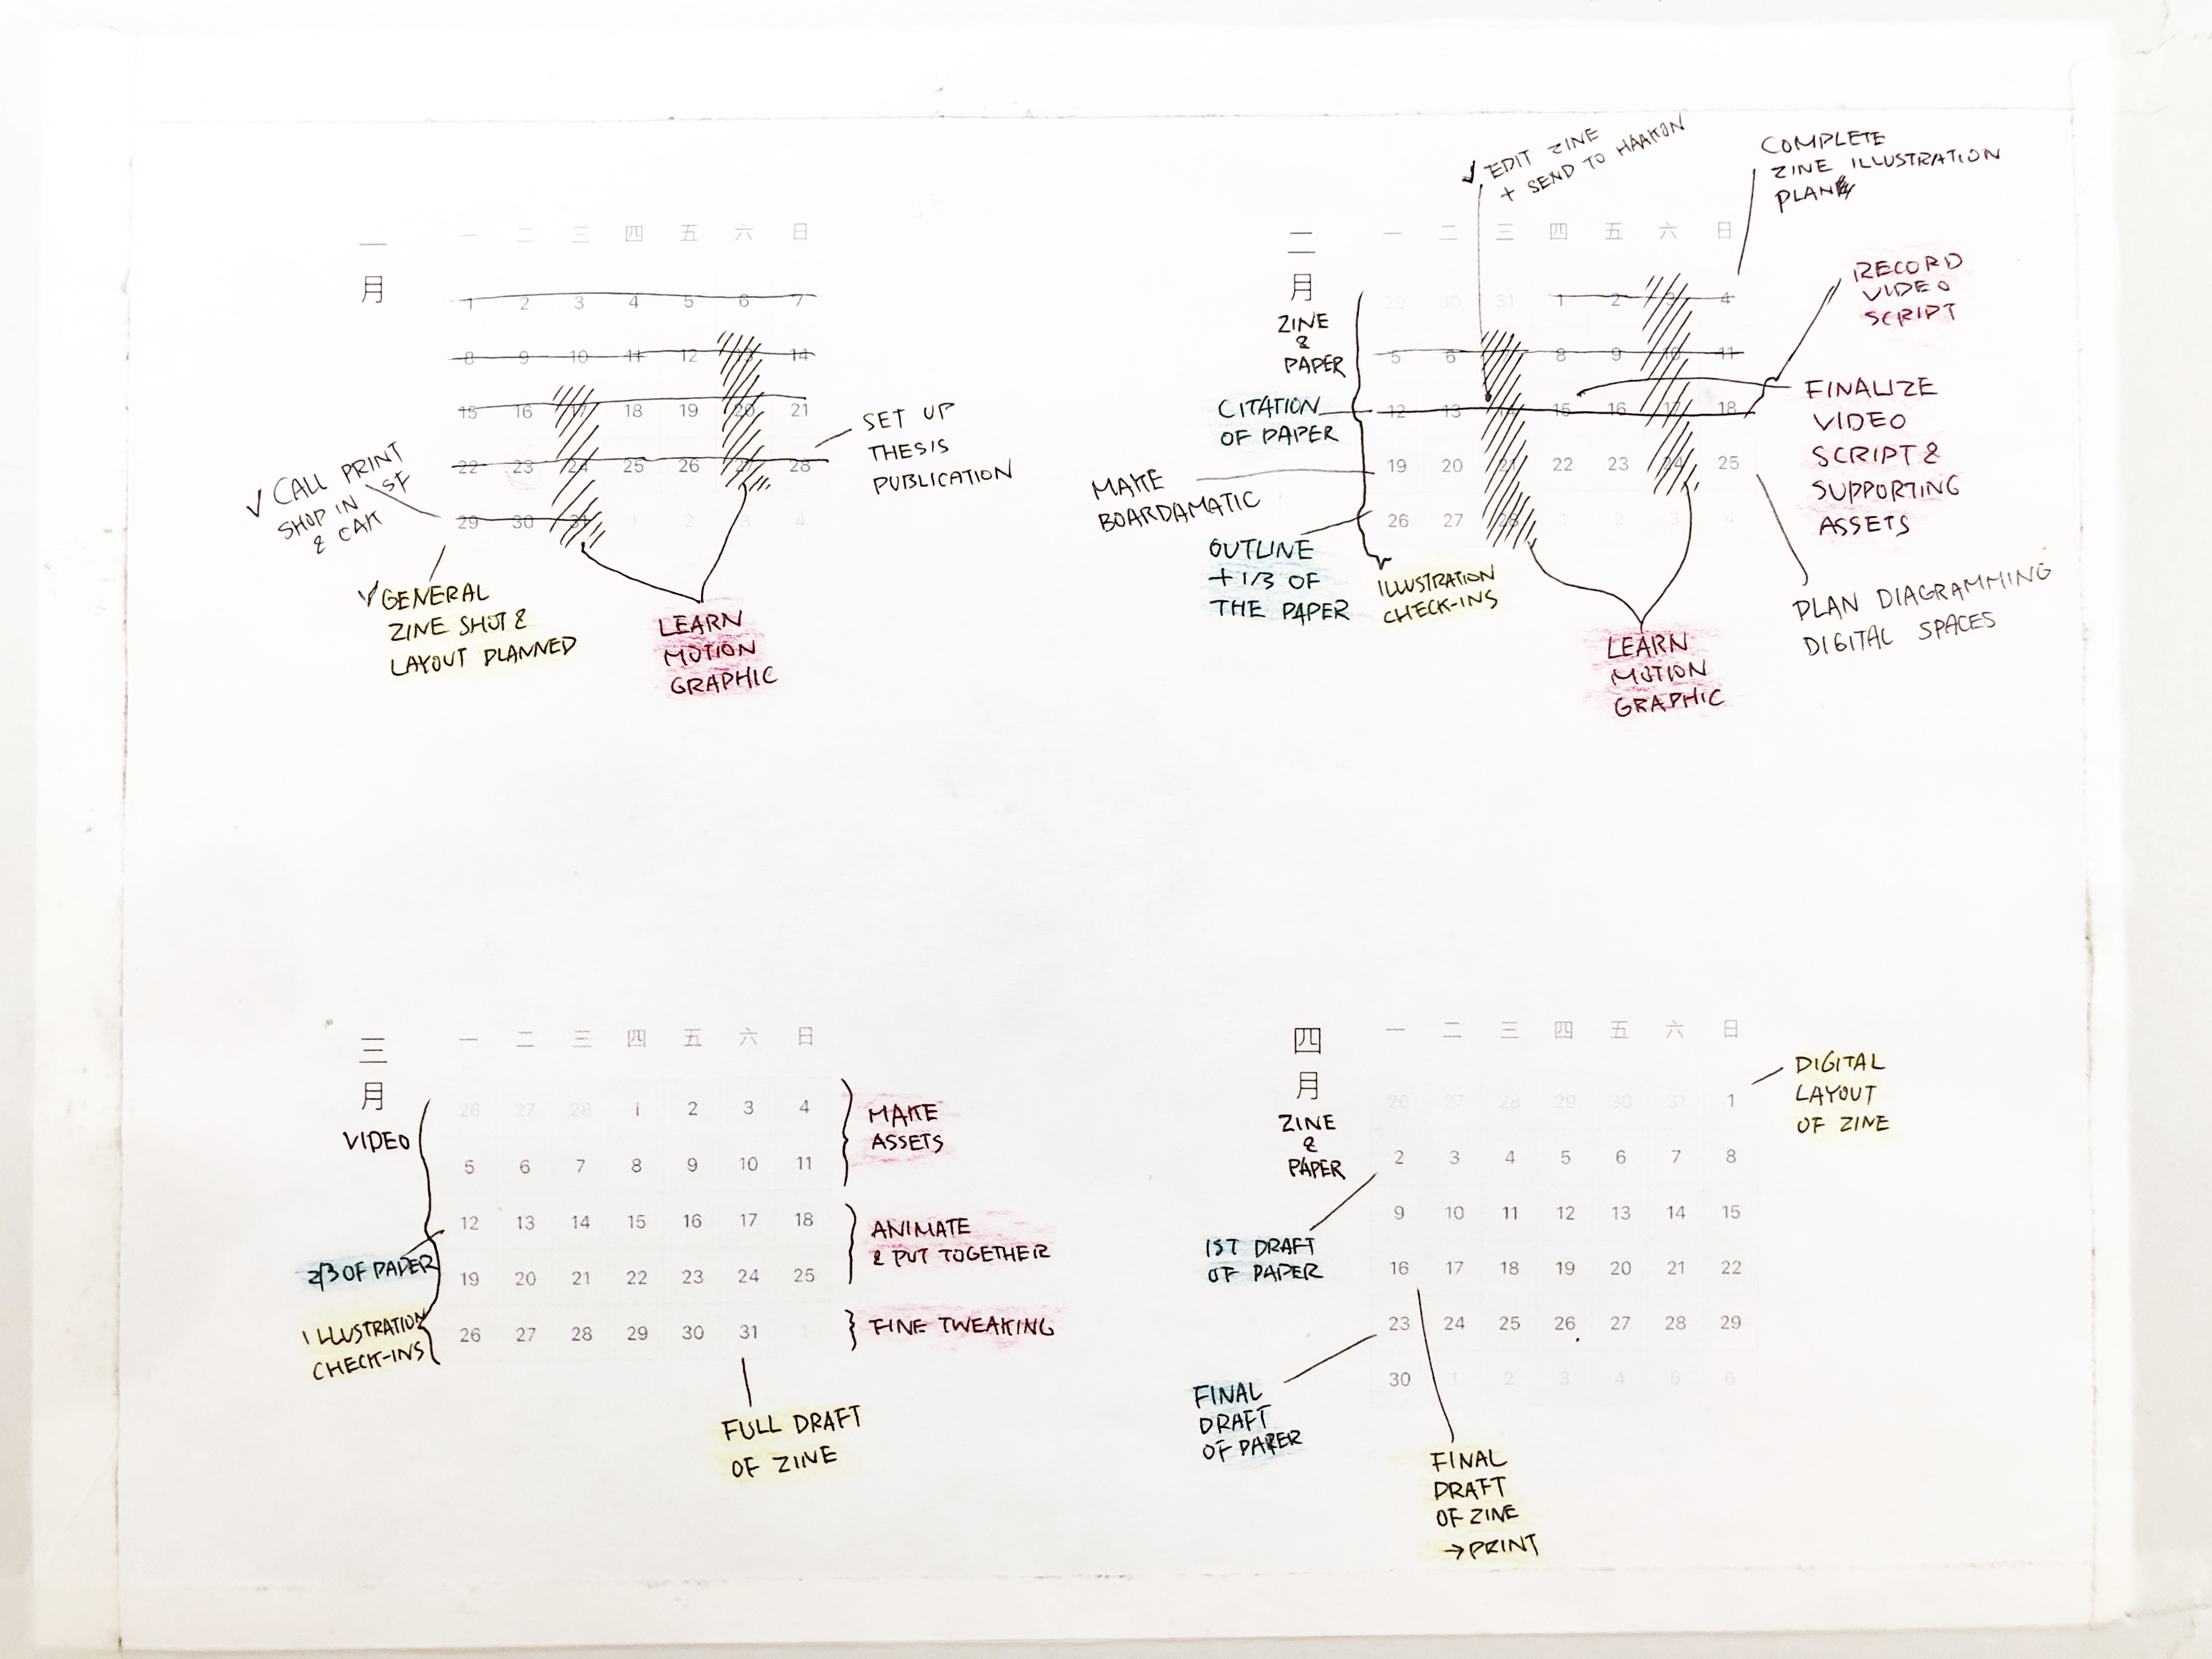 一月
一 二 三 四 五 六 日
1 2 3 4 5 6 7
8 9 10 11 12 13 14
15 16 17 18 19 20 21
22 23 24 25 26 27 28
29 30 31 1 2 3 4
✓ CALL PRINT
SHOP IN SF
& OAK
✓ GENERAL
ZINE SHOT &
LAYOUT PLANNED
LEARN
MOTION
GRAPHIC
SET UP
THESIS
PUBLICATION
二月
ZINE
&
PAPER
一 二 三 四 五 六 日
29 30 31 1 2 3 4
5 6 7 8 9 10 11
12 13 14 15 16 17 18
19 20 21 22 23 24 25
26 27 28 1 2 3 4
✓ EDIT ZINE
+ SEND TO HAAKON
COMPLETE
ZINE ILLUSTRATION
PLAN
RECORD
VIDEO
SCRIPT
FINALIZE
VIDEO
SCRIPT &
SUPPORTING
ASSETS
PLAN DIAGRAMMING
DIGITAL SPACES
CITATION
OF PAPER
MAKE
BOARDAMATIC
OUTLINE
+ 1/3 OF
THE PAPER
ILLUSTRATION
CHECK-INS
LEARN
MOTION
GRAPHIC
三月
VIDEO
一 二 三 四 五 六 日
26 27 28 1 2 3 4
5 6 7 8 9 10 11
12 13 14 15 16 17 18
19 20 21 22 23 24 25
26 27 28 29 30 31 1
2/3 OF PAPER
ILLUSTRATION
CHECK-INS
MAKE
ASSETS
ANIMATE
& PUT TOGETHER
FINE TWEAKING
FULL DRAFT
OF ZINE
四月
ZINE
&
PAPER
一 二 三 四 五 六 日
26 27 28 29 30 31 1
2 3 4 5 6 7 8
9 10 11 12 13 14 15
16 17 18 19 20 21 22
23 24 25 26 27 28 29
30 1 2 3 4 5 6
DIGITAL
LAYOUT
OF ZINE
1ST DRAFT
OF PAPER
FINAL
DRAFT
OF PAPER
FINAL
DRAFT
OF ZINE
→ PRINT